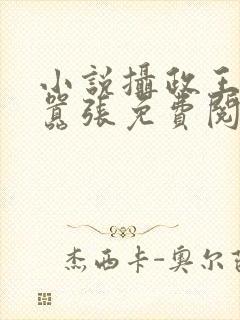 小說攝政王
囂張免費閱
杰西卡-奥尔芭